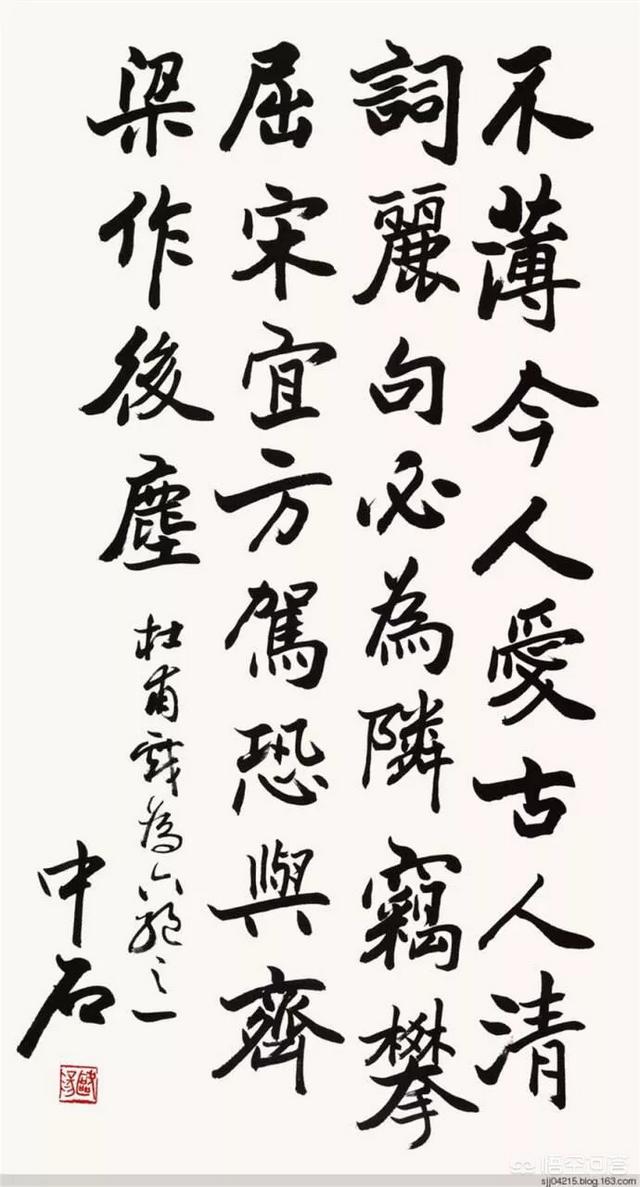 不薄今人愛古人清
詞麗句必為隣竊攀
屈宋宜方駕恐與齊
梁作後塵
杜甫戲為六絕之一
中石
悟空问答
sjj04215.blog.163.com